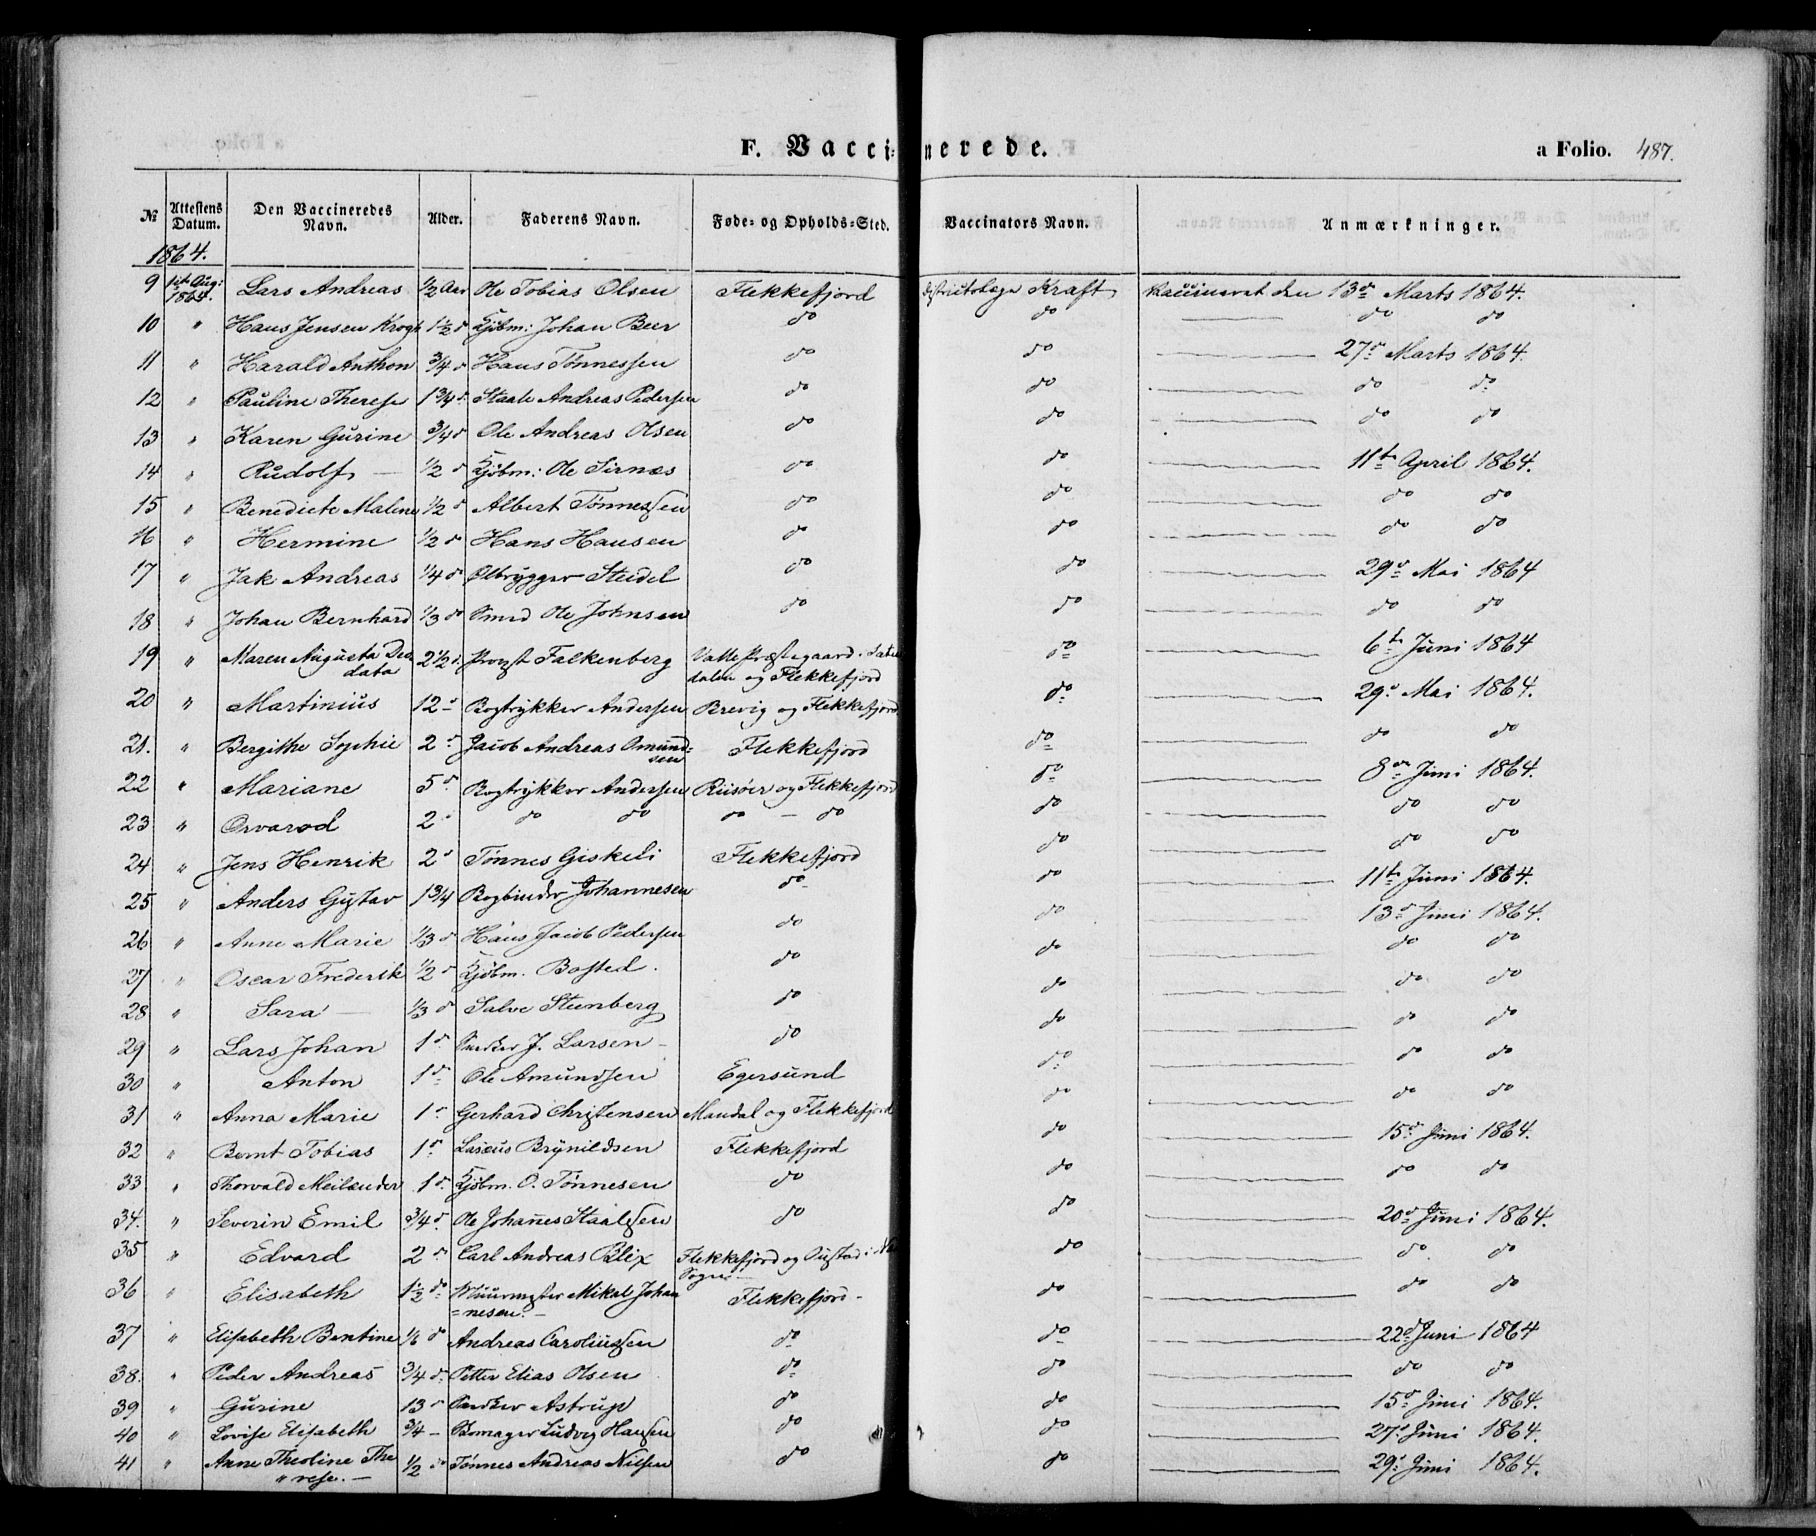 F. Vaccinerede. a Folio. 487.
№ Attestens Datum. Den Vaccineredes Navn. Alder. Faderens Navn. Føde- og Opholds-Sted. Vaccinators Navn. Anmærkninger.
1864.
9 1ste Aug: 1864. Lars Andreas ½ Aar Ole Tobias Olsen Flekkefjord Districtslæge Kraft Vaccineret den 13de Marts 1864.
10 " Hans Jensen Krogh 1½ do Kjøbm: Johan Beer do do do do
11 " Harald Anthon ¾ do Hans Tønnessen do do 27de Marts 1864.
12 " Pauline Therese 1¾ do Staale Andreas Pedersen do do do do
13 " Karen Gurine ¾ do Ole Andreas Olsen do do do do
14 " Rudolf ½ do Kjøbm: Ole Sirnæs do do 11te April 1864.
15 " Benedicte Maline ½ do Albert Tønnessen do do do do
16 " Hermine ½ do Hans Hansen do do do do
17 " Jak Andreas ¼ do Ølbrygger Steidel do do 29de Mai 1864
18 " Johan Bernhard ⅓ do Smed Ole Johnsen do do do do
19 " Maren Augusta Deo- 2½ do Provst Falkenberg Valle Præstegaard i Sæters- do 6te Juni 1864
data dalen og Flekkefjord
20 " Martinius 12 do Bogtrykker Andersen Brevig og Flekkefjord do 29de Mai 1864.
21. " Bergithe Sophie 2 do Jacob Andreas Omund- Flekkefjord do do do
sen
22 " Mariane 5 do Bogtrykker Andersen Riisøer og Flekkefjord do 8de Juni 1864.
23 " Orvarod 2 do do do do - do do do do
24 " Jens Henrik 2 do Tønnes Giskeli Flekkefjord do do do
25 " Anders Gustav 1¾ Bogbinder Johannesen do do 11te Juni 1864.
26 " Anne Marie ⅓ do Hans Jacob Pedersen do do 13de Juni 1864.
27 " Oscar Frederik ½ do Kjøbm. Bosted. do do do do
28 " Sara ⅓ do Salve Steenberg do do do do
29 " Lars Johan 1 do Snedker J. Larsen do do do do
30 " Anton 1 do Ole Amundsen Egersund do do do
31 " Anna Marie 1 do Gerhard Christensen Mandal og Flekkefjord do do do
32 " Bernt Tobias 1 do Laseus Brynildsen Flekkefjord do 15de Juni 1864.
33 " Thorvald Meilænder 1 do Kjøbm. O. Tønnesen do do do do
34. " Severin Emil ¾ do Ole Johanes Staalesen do do 20de Juni 1864.
35 " Edvard 2 do Carl Andreas Blix Flekkefjord og do do do
Sogn
36 " Elisabeth 1½ do Muurmester Mikal Johan Flekkefjord do do do
=nesen.
37 " Elisabeth Bentine ⅙ do Andreas Caroliussen do do 22de Juni 1864
38. " Peder Andreas ¾ do Petter Elias Olsen do do do do
39 " Gurine 13 do Snedker Astrup do do 15de Juni 1864.
40 " Lovise Elisabeth ¾ Ludvig Hansen do do 27de Juni 1864.
41 " Anne Theoline The ½ do Tønnes Andreas Nilsen do do 29de Juni 1864.
"rese.